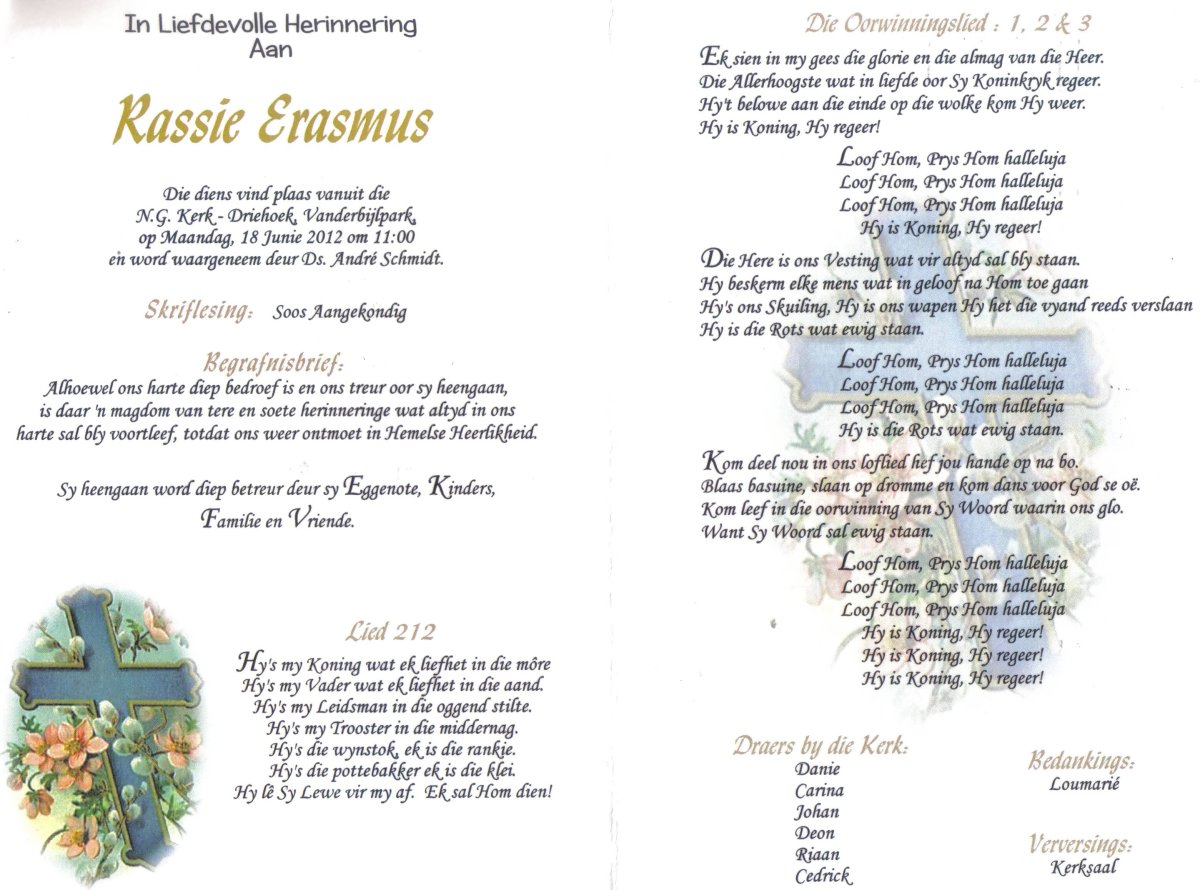 In Liefdevolle Herinnering
Aan
Rassie Erasmus
Die diens vind plaas vanuit die
N.G. Kerk - Driehoek, Vanderbijlpark,
op Maandag, 18 Junie 2012 om 11:00
en word waargeneem deur Ds. André Schmidt.
Skriflesing: Soos Aangekondig
Begrafnisbrief:
Alhoewel ons harte diep bedroef is en ons treur oor sy heengaan,
is daar 'n magdom van tere en soete herinneringe wat altyd in ons
harte sal bly voortleef, totdat ons weer ontmoet in Hemelse Heerlikheid.
Sy heengaan word diep betreur deur sy Eggenote, Kinders,
Familie en Vriende.
Lied 212
Hy's my Koning wat ek liefhet in die môre
Hy's my Vader wat ek liefhet in die aand.
Hy's my Leidsman in die oggend stilte.
Hy's my Trooster in die middernag.
Hy's die wynstok, ek is die rankie.
Hy's die pottebakker ek is die klei.
Hy lê Sy Lewe vir my af. Ek sal Hom dien!
Die Oorwinningslied : 1, 2 & 3
Ek sien in my gees die glorie en die almag van die Heer.
Die Allerhoogste wat in liefde oor Sy Koninkryk regeer.
Hy't belowe aan die einde op die wolke kom Hy weer.
Hy is Koning, Hy regeer!
Loof Hom, Prys Hom halleluja
Loof Hom, Prys Hom halleluja
Loof Hom, Prys Hom halleluja
Hy is Koning, Hy regeer!
Die Here is ons Vesting wat vir altyd sal bly staan.
Hy beskerm elke mens wat in geloof na Hom toe gaan
Hy's ons Skuiling, Hy is ons wapen Hy het die vyand reeds verslaan
Hy is die Rots wat ewig staan.
Loof Hom, Prys Hom halleluja
Loof Hom, Prys Hom halleluja
Loof Hom, Prys Hom halleluja
Hy is die Rots wat ewig staan.
Kom deel nou in ons loflied hef jou hande op na bo.
Blaas basuine, slaan op dromme en kom dans voor God se oë.
Kom leef in die oorwinning van Sy Woord waarin ons glo.
Want Sy Woord sal ewig staan.
Loof Hom, Prys Hom halleluja
Loof Hom, Prys Hom halleluja
Loof Hom, Prys Hom halleluja
Hy is Koning, Hy regeer!
Hy is Koning, Hy regeer!
Hy is Koning, Hy regeer!
Draers by die Kerk:
Danie
Carina
Johan
Deon
Riaan
Cedrick
Bedankings:
Loumarié
Verversings:
Kerksaal